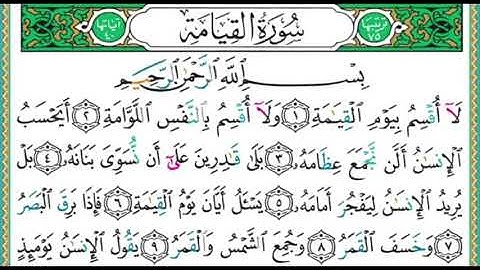 ترتيبها ٧٥ سُورَةُ الْقِيَامَة آياتها ٤٠
بِسْمِ اللَّهِ الرَّحْمَٰنِ الرَّحِيمِ
لَآ أُقْسِمُ بِيَوْمِ الْقِيَٰمَةِ ١ وَلَآ أُقْسِمُ بِالنَّفْسِ اللَّوَّامَةِ ٢ أَيَحْسَبُ
الْإِنسَٰنُ أَلَّن نَّجْمَعَ عِظَامَهُۥ ٣ بَلَىٰ قَٰدِرِينَ عَلَىٰٓ أَن نُّسَوِّىَ بَنَانَهُۥ ٤ بَلْ
يُرِيدُ الْإِنسَٰنُ لِيَفْجُرَ أَمَامَهُۥ ٥ يَسْـَٔلُ أَيَّانَ يَوْمُ الْقِيَٰمَةِ ٦ فَإِذَا بَرِقَ الْبَصَرُ
٧ وَخَسَفَ الْقَمَرُ ٨ وَجُمِعَ الشَّمْسُ وَالْقَمَرُ ٩ يَقُولُ الْإِنسَٰنُ يَوْمَئِذٍ